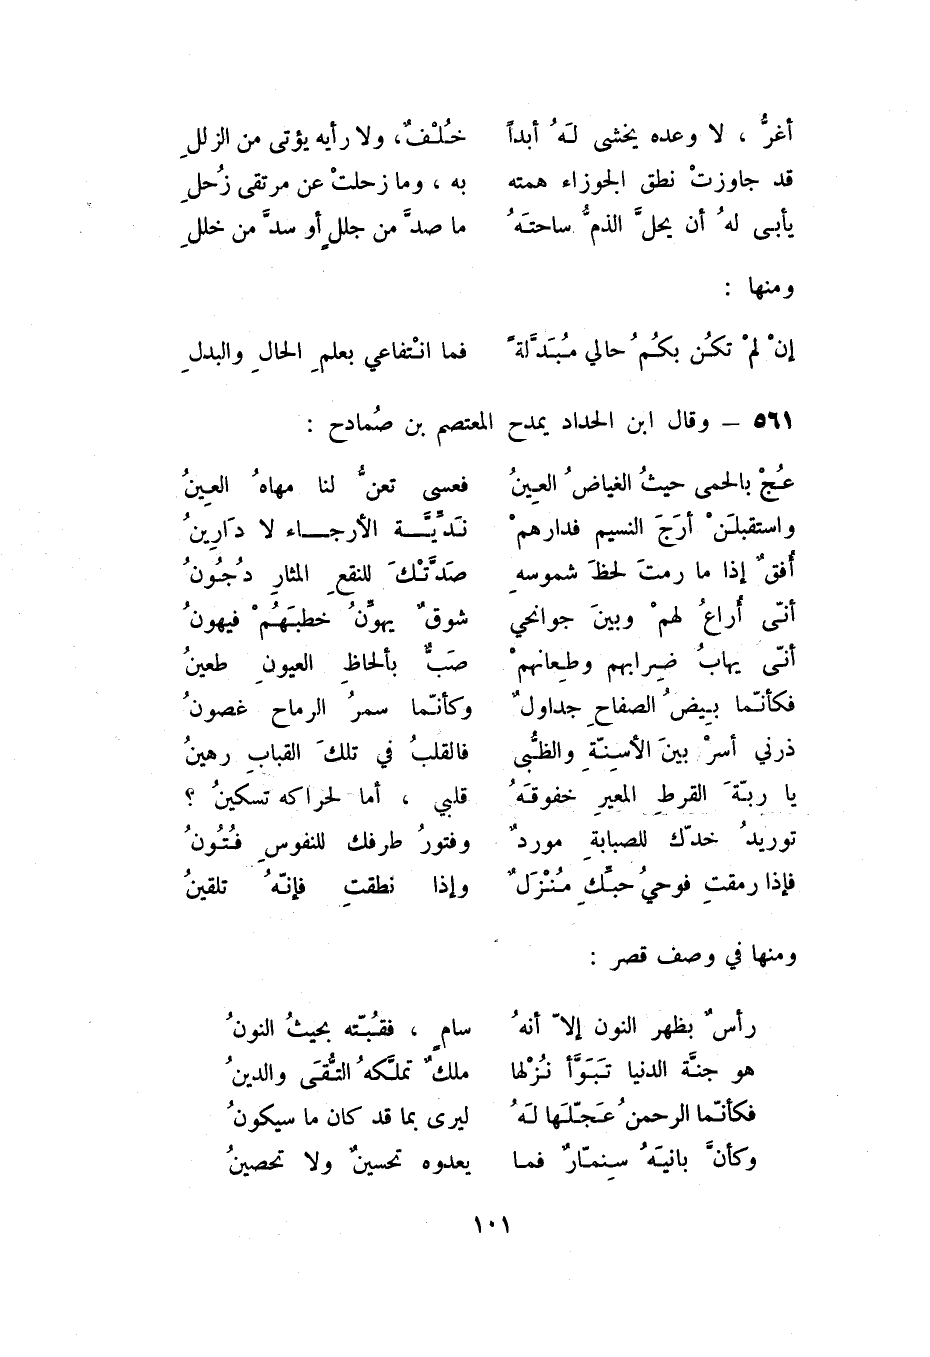 أغرُّ ، لا وعده يخشى لَهُ أبداً خُلْفٌ، ولا رأيه يؤتى من الزللِ
قد جاوزتْ نطق الجوزاء همته به ، وما زحلتْ عن مرتقى زُحلِ
يأبى لهُ أن يحلَّ الذمُّ ساحتَهُ ما صدَّ من جللٍ أو سدَّ من خللِ
ومنها :
إنْ لمْ تكُن بكُمُ حالي مُبَدَّلةً فما انْتفاعي بعلمِ الحالِ والبدلِ
٥٦١ – وقال ابن الحداد يمدح المعتصم بن صُمادح :
عُجْ بالحمى حيثُ الغياضُ العِينُ فعسى تعنُّ لنا مهاهُ العِينُ
واستقبلَنْ أرَجَ النسيم فدارهمْ نَدِّيَّة الأرجاء لا دَارِينُ
أُفقٌ إذا ما رمتَ لحظَ شموسهِ صَدَّتْكَ للنقعِ المثارِ دُجُونُ
أنّى أُراعُ لهمْ وبينَ جوانحي شوقٌ يهوِّنُ خطبَهُمْ فيهونُ
أنّى يهابُ ضِرابهم وطِعانهمْ صَبٌّ بألحاظِ العيونِ طعينُ
فكأنّما بِيضُ الصفاحِ جداولٌ وكأنّما سمرُ الرماح غصونُ
ذرني أسرْ بينَ الأسِنّةِ والظُّبى فالقلبُ في تلكَ القبابِ رهينُ
يا ربّةَ القرطِ المعيرِ خفوقَهُ قلبي ، أما لحراكه تسكينُ ؟
توريدُ خدّكِ للصبابةِ موردٌ وفتورُ طرفك للنفوسِ فُتُونُ
فإذا رمقتِ فوحيُ حبِّكِ مُنْزَلٌ وإذا نطقتِ فإنّهُ تلقينُ
ومنها في وصف قصر :
رأسٌ بظهر النون إلاّ أنهُ سامٍ ، فقُبّته بحيثُ النونُ
هو جنَّة الدنيا تَبَوَّأ نُزْلها ملكٌ تملَّكهُ التُّقَى والدينُ
فكأنّما الرحمنُ عَجّلَها لَهُ ليرى بما قد كان ما سيكونُ
وكأنَّ بانيَهُ سِنمّارٌ فما يعدوه تحسينٌ ولا تحصينُ
١٠١